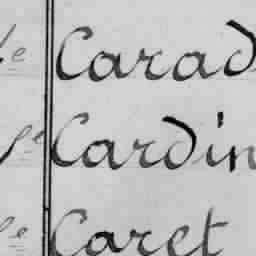 le Carad
Se Cardin
le Caret